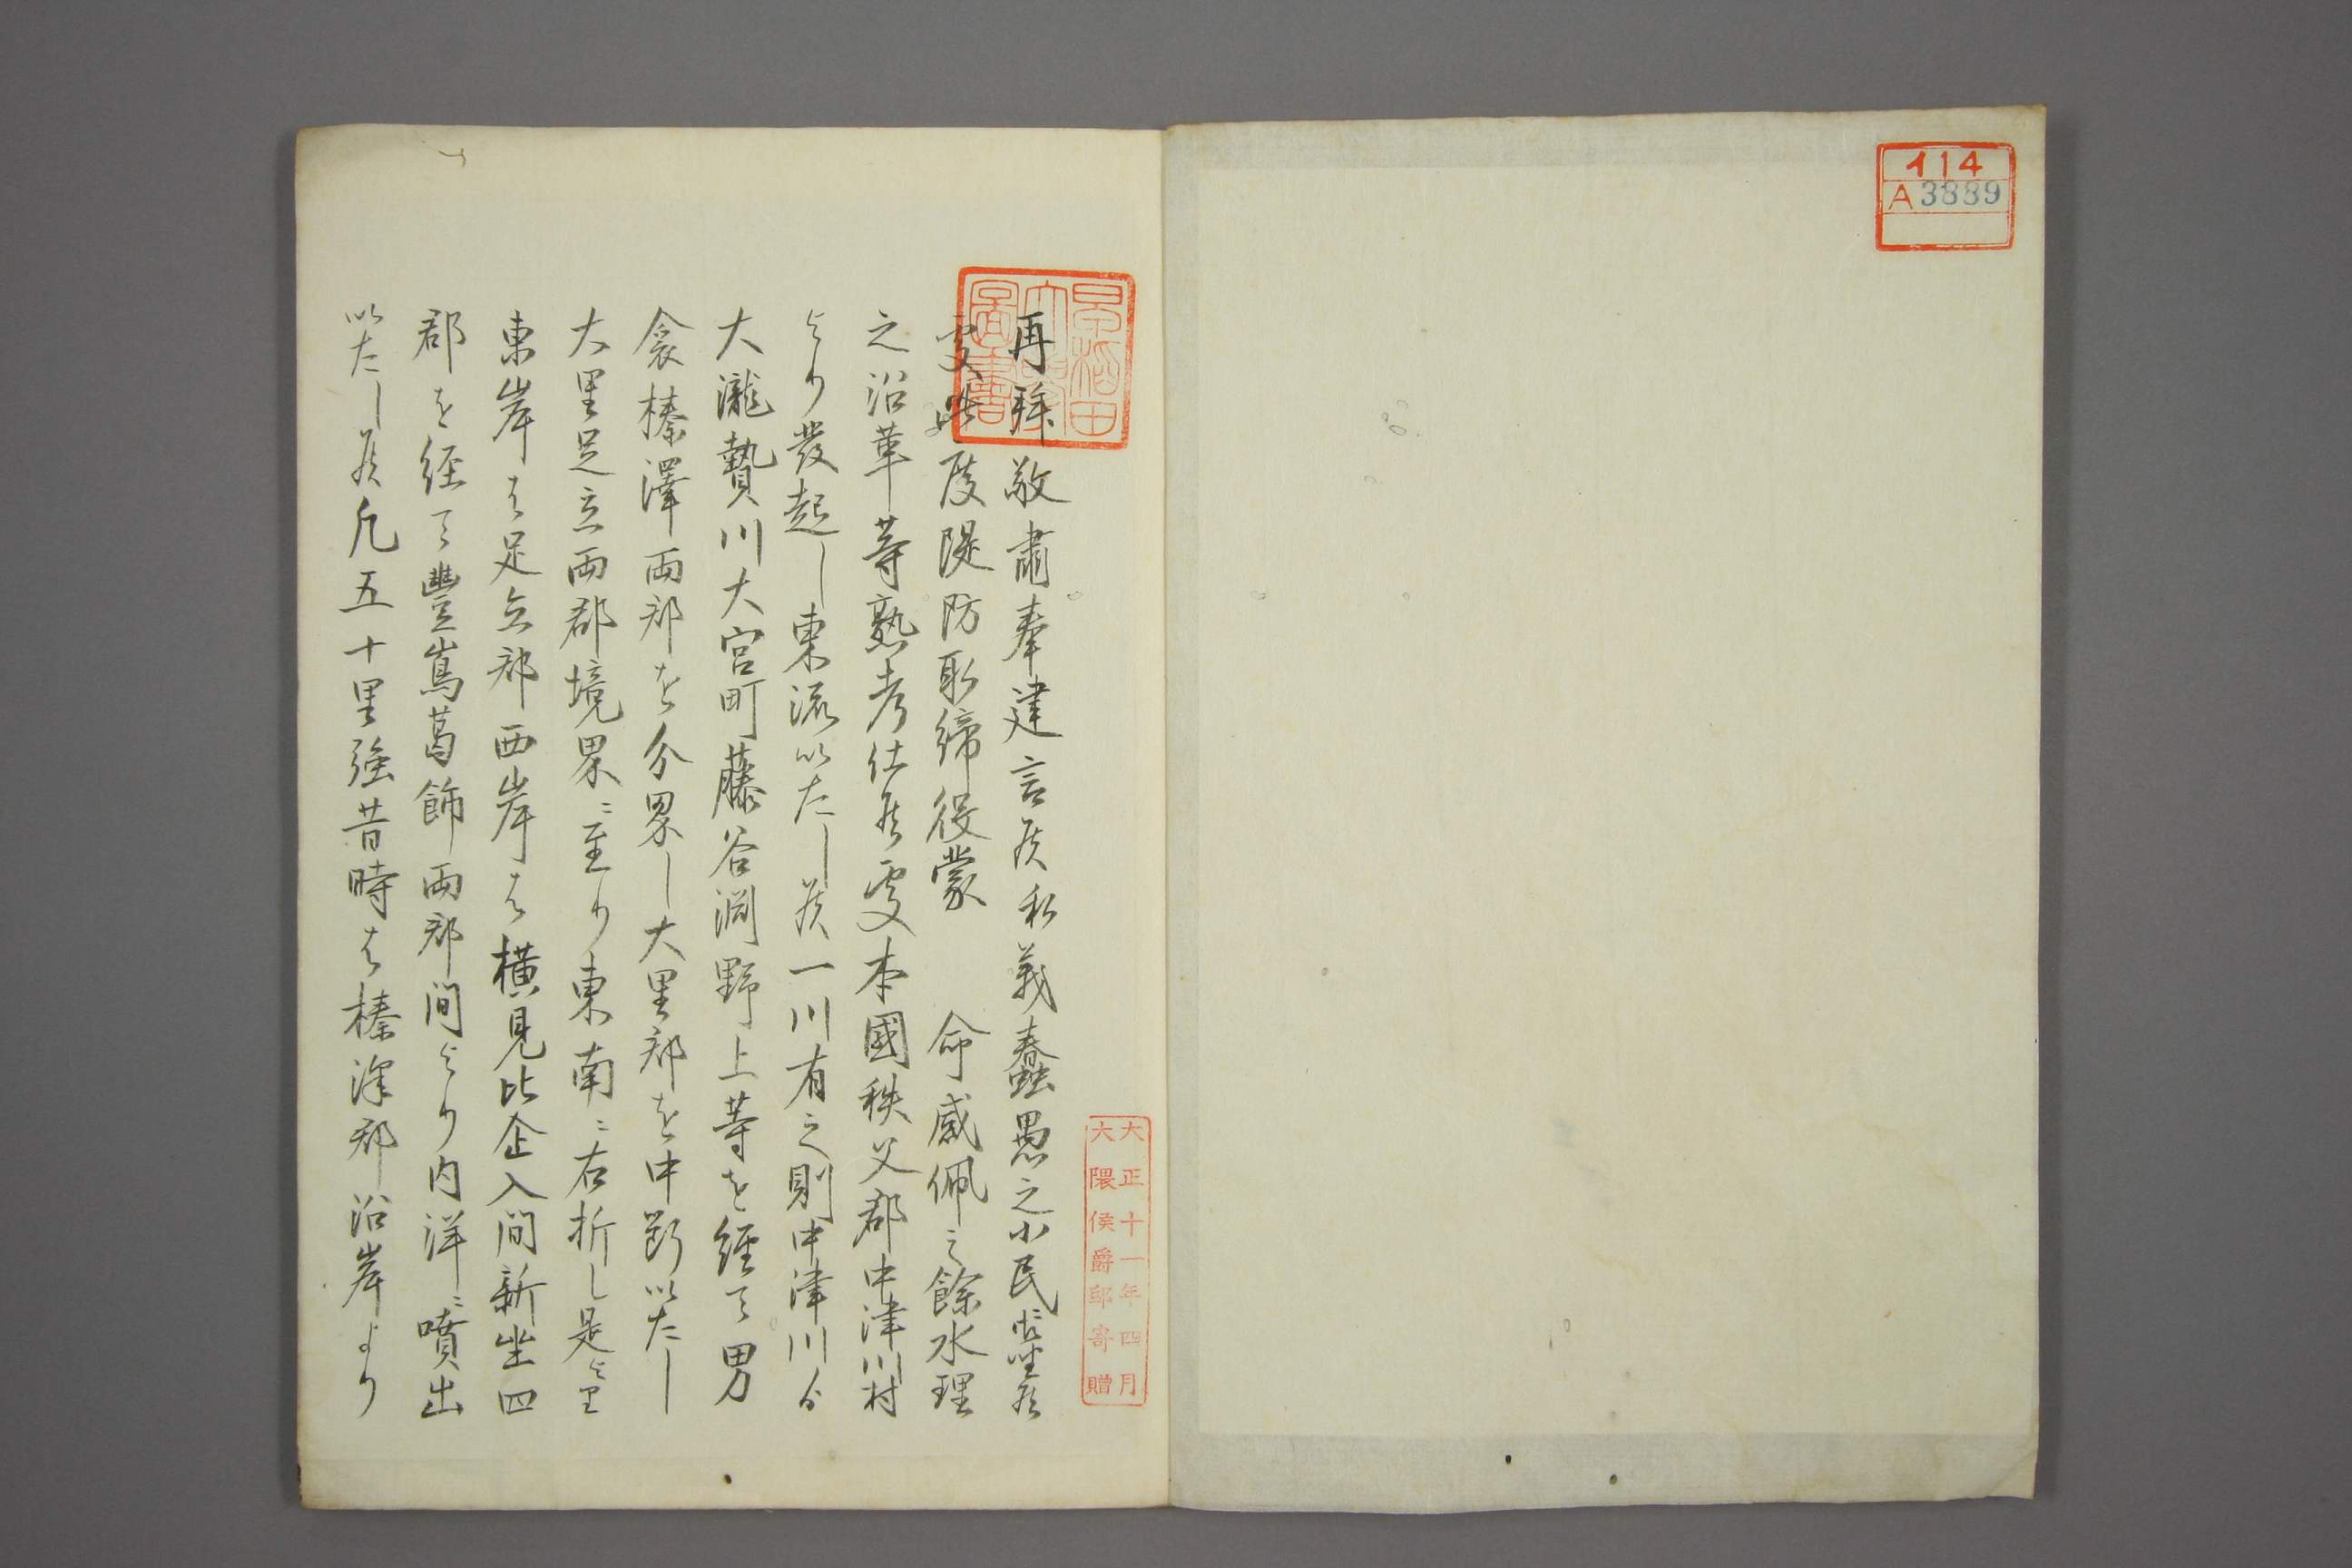 イ14
A3889
早稲田大學圖書
大正十一年四月
大隈侯爵邸寄贈
再拜敬肅奉建言候私義蠢愚之小民ニ御坐候
処此度隄防取締役蒙　命感佩之餘水理
之沿革等熟考仕候処本國秩父郡中津川村
より發起し東流いたし候一川有之則中津川ゟ
大瀧贄川大宮町藤谷渕野上等を經て男
衾榛澤両郡を分界し大里郡を中断いたし
大里足立両郡境界ニ至り東南ニ右折し是より
東岸は足立郡西岸は横見比企入間新坐四
郡を経て豐嶌葛飾両郡間より内洋ニ噴出
いたし候凡五十里強昔時は榛澤郡沿岸より